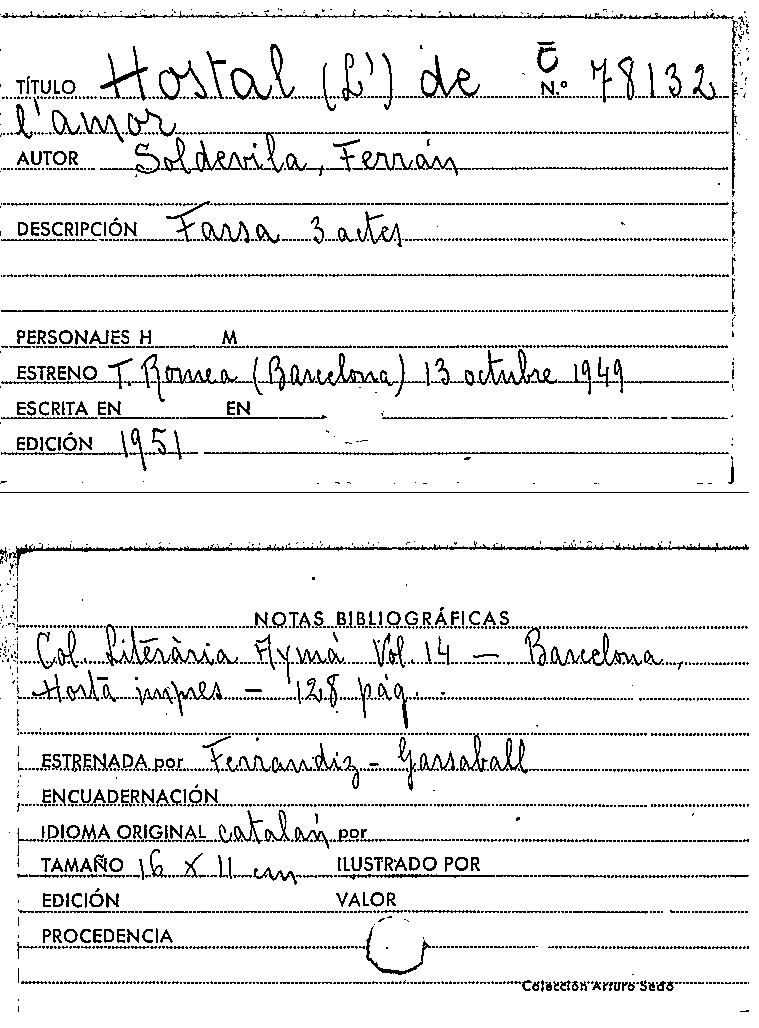 TÍTULO Hostal (L') de C̄ N.º 78132
l'amor
AUTOR Soldevila, Ferrán
DESCRIPCIÓN Farsa 3 actes
PERSONAJES H M
ESTRENO T. Romea (Barcelona) 13 octubre 1949
ESCRITA EN EN
EDICIÓN 1951
NOTAS BIBLIOGRÁFICAS
Col. Literària Aymá Vol. 14 — Barcelona,
Hostà imprès — 128 pág.
ESTRENADA por Ferrandiz - Garsaball
ENCUADERNACIÓN
IDIOMA ORIGINAL catalán por
TAMAÑO 16 x 11 cm ILUSTRADO POR
EDICIÓN VALOR
PROCEDENCIA
Colección Arturo Sedó